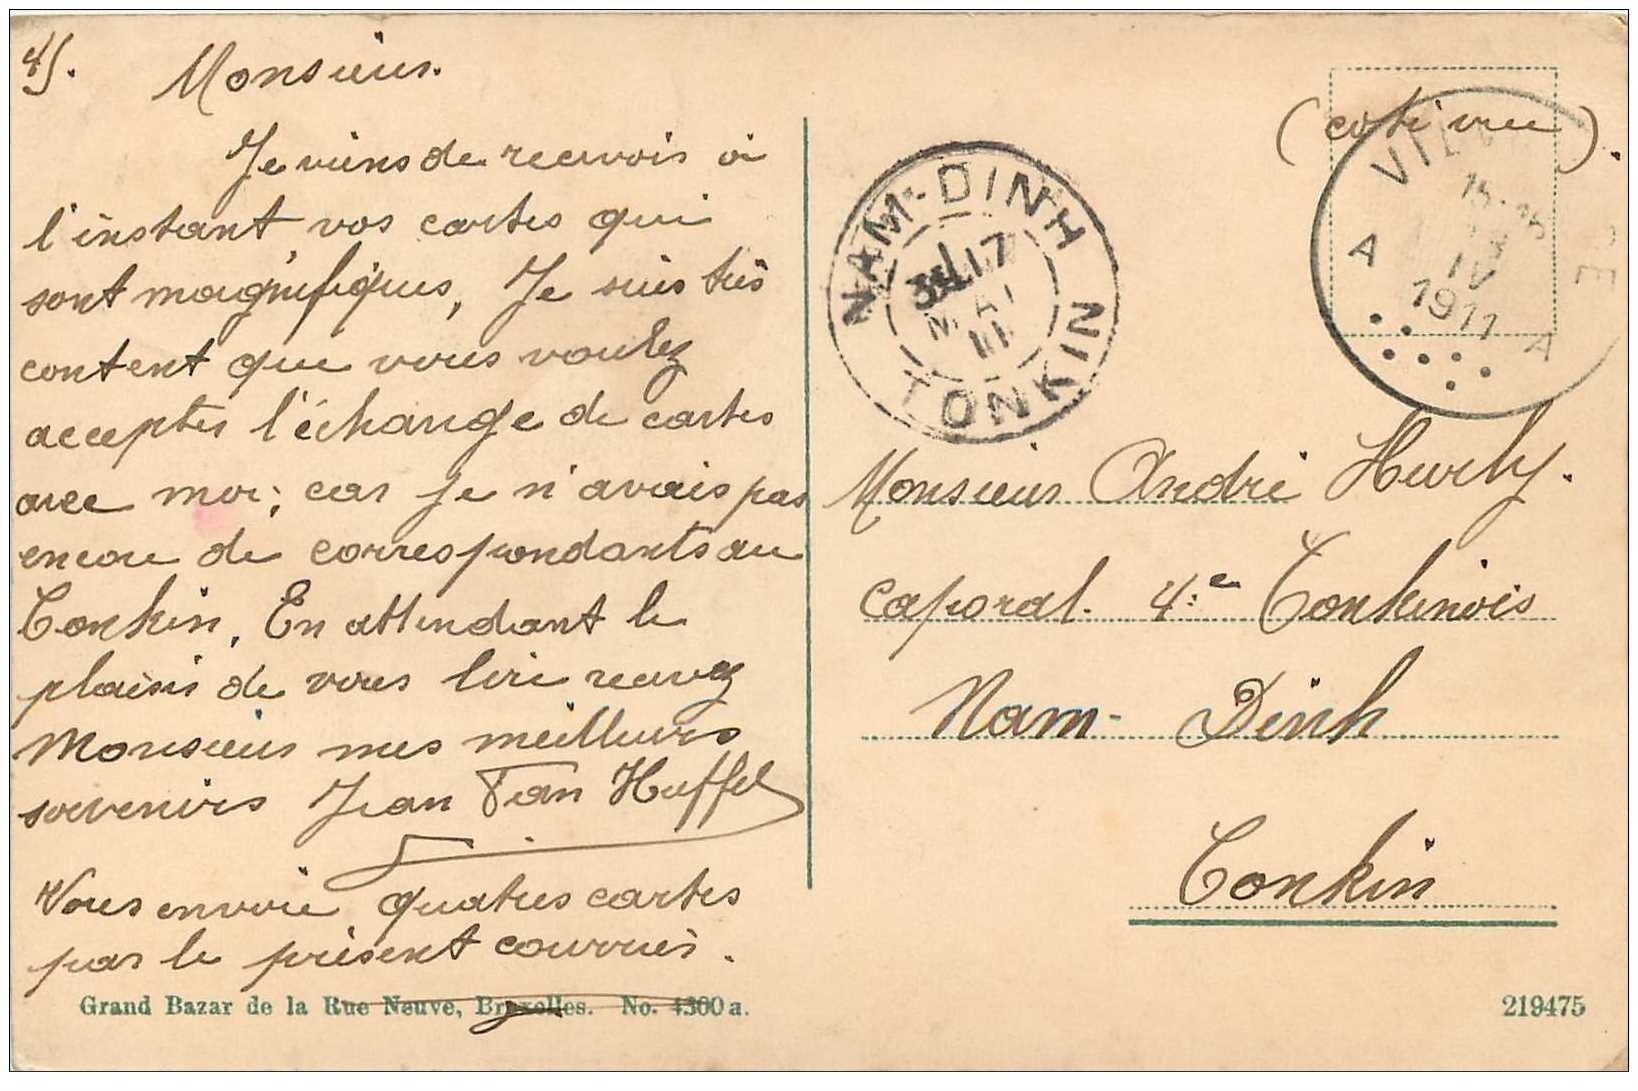 4).
Monsieur.
Je viens de recevoir à
l'instant vos cartes qui
sont magnifiques, Je suis très
content que vous voulez
accepter l'échange de cartes
avec moi; car je n'avais pas
encore de correspondants au
Tonkin, En attendant le
plaisir de vous lire recevez
Monsieur mes meilleurs
souvenirs Jean Van Huffel
Vous envoie quatres cartes
par le présent courrier.
Grand Bazar de la Rue Neuve, Bruxelles. No. 4300a.
(coté vue).
NAM-DINH
17
MAI
11
TONKIN
VIL
DE
15-16
IV
1911
A A
Monsieur André Hurly.
caporal. 4:e Tonkinois
Nam-Dinh
Tonkin
219475